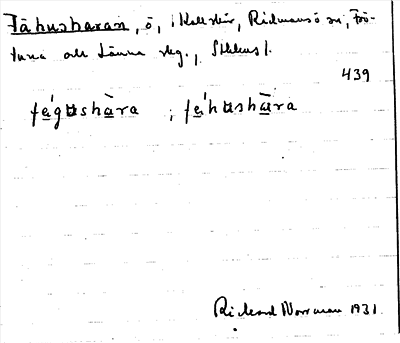 Fähusharan, ö, i Kallskär, Ridmansö sn, Frö-
tuna och Länna skg., Sthlms l.
439
fä́gʉshàra ; fä́hʉshàra
Rickard Norrman 1931.